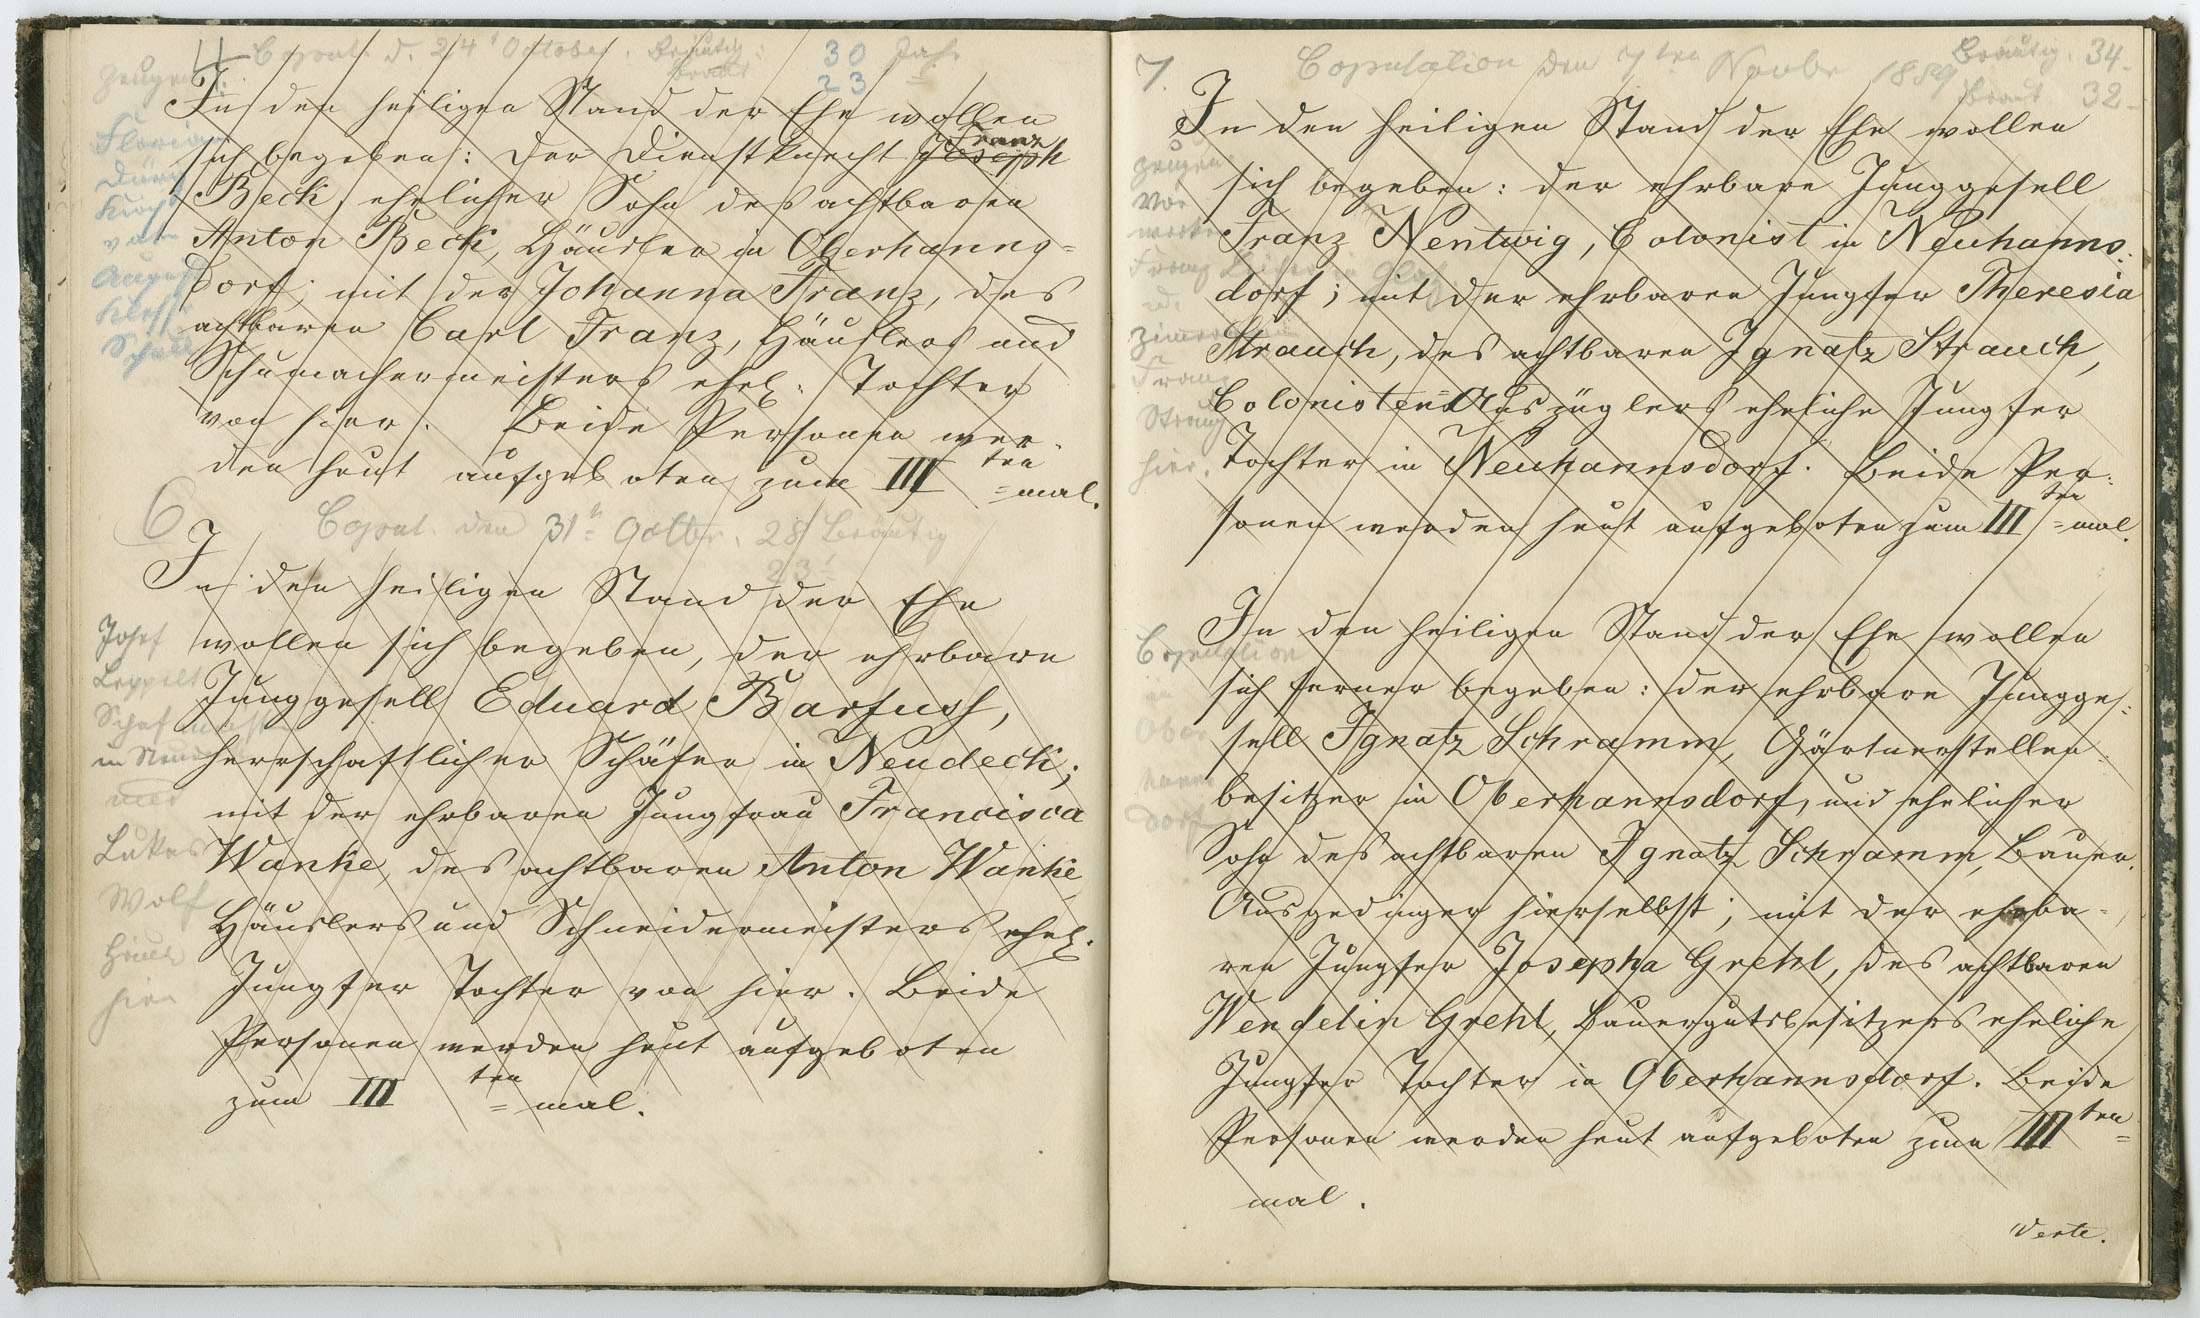 4 Copul. d. 24t October. Bräutig: 30 Jah.
Braut 23
Zeugen
In den heiligen Stand der Ehe wollen
sich begeben: der Dienstknecht Joseph Franz
Beck, ehelicher Sohn des achtbaren
Anton Beck, Häusler in Oberhanns=
dorf; mit der Johanna Franz, des
achtbaren Carl Franz, Häuslers und
Schumachermeisters ehel. Tochter
von hier. Beide Personen wer-
den heut aufgeboten zum III ten
=mal.
Florian
August
6 Copul. den 31t Octbr. 28 Bräutig
23
In den heiligen Stand der Ehe
wollen sich begeben, der ehrbare
Junggesell Eduard Barfuss,
herrschaftlicher Schäfer in Neudeck;
mit der ehrbaren Jungfrau Francisca
Wanke, des achtbaren Anton Wanke
Häuslers und Schneidermeisters ehel.
Jungfer Tochter von hier. Beide
Personen werden heut aufgeboten
zum III ten = mal.
Josef
Leppelt
in
und
Lukas
Wolf
hier
7. Copulation den 7ten Novbr 1889 Bräutig. 34-
Braut 32-
In den heiligen Stand der Ehe wollen
sich begeben: der ehrbare Junggesell
Franz Nentwig, Colonist in Neuhanns:
dorf; mit der ehrbaren Jungfer Theresia
Strauch, des achtbaren Ignatz Strauch,
Colonisten=Auszüglers eheliche Jungfer
Tochter in Neuhannsdorf. Beide Per:
sonen werden heut aufgeboten zum III ten =mal.
Zeugen
Franz
u.
Franz
hier.
In den heiligen Stand der Ehe wollen
sich ferner begeben: der ehrbare Jungge:
sell Ignatz Schramm, Gärtnerstellen-
besitzer in Oberhannsdorf, und ehelicher
Sohn des achtbaren Ignatz Schramm, Bauer.
Ausgedinger hierselbst; mit der ehrba=
ren Jungfer Josepha Grehl, des achtbaren
Wendelin Grehl, Bauergutsbesitzers eheliche
Jungfer Tochter in Oberhannsdorf. Beide
Personen werden heut aufgeboten zum III ten=
mal.
Copulation
in
Ober
hanns
dorf
Verte.